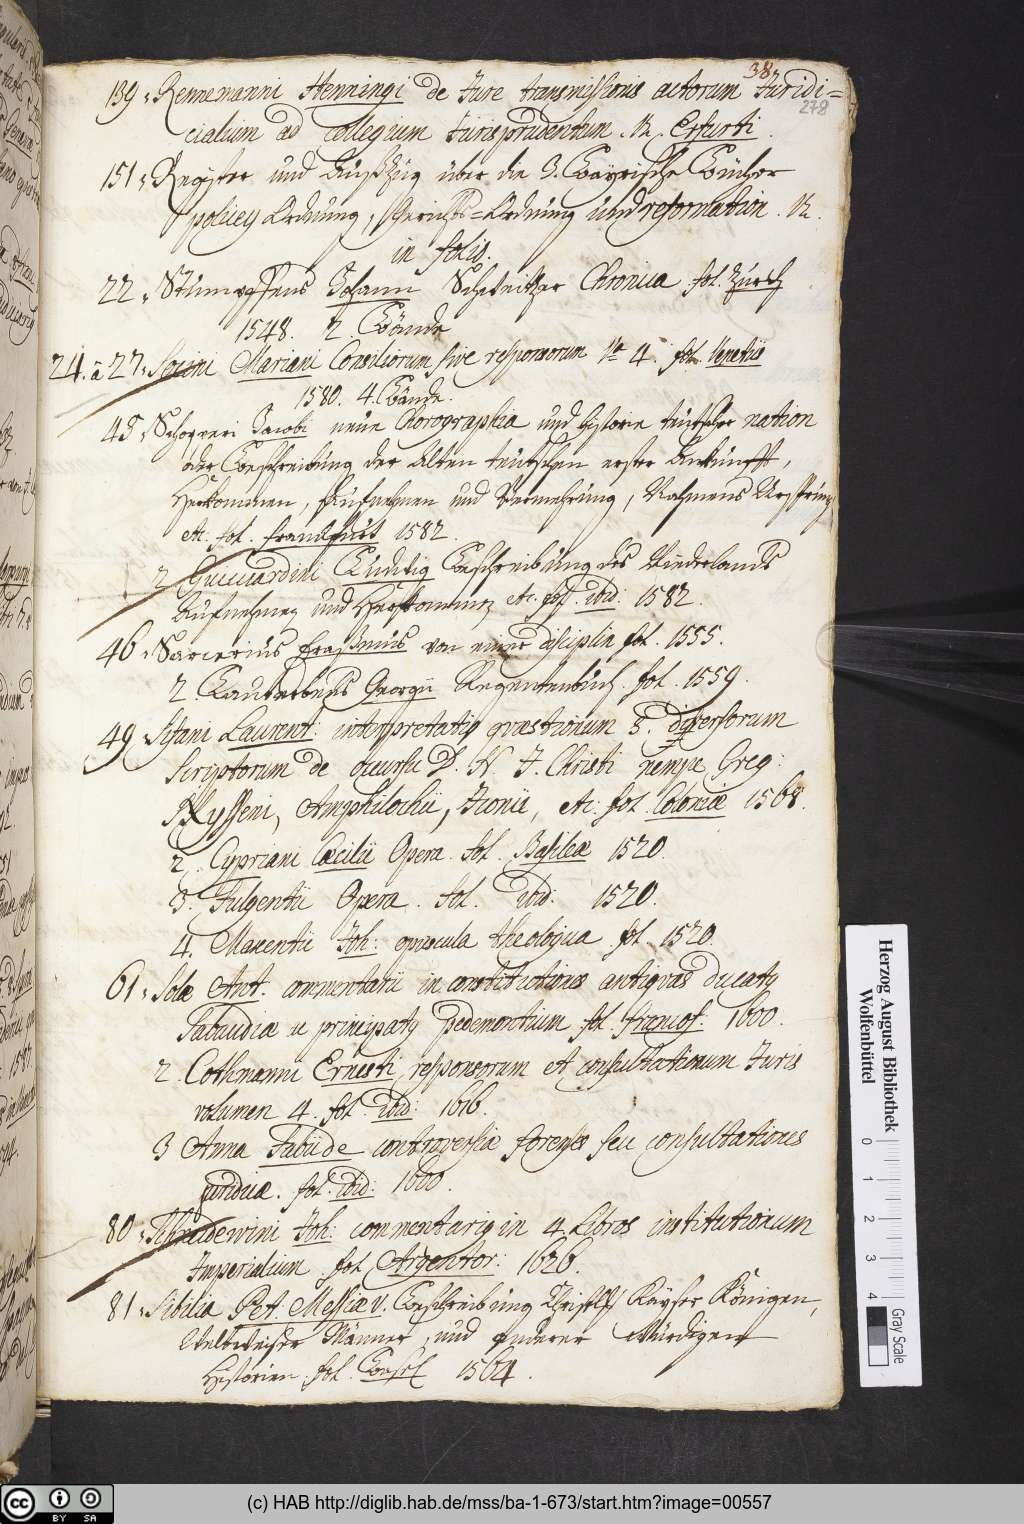 38
278
139. Rennemanni Henningi de Jure transmissionis actorum Juridi-
cialium ad collegium Jurisprudentum. Erfurti.
151. Register und Außzüg über die 3. Bayrische Bücher
policey Ordnung, Gerichts=Ordnung und reformation.
in folio.
22. Stumpffens Johann Schweitzer Chronica. fol. Zürch
1548. 2. Bände
24. a 27. Socini Mariani Consiliorum sive responsorum 4. fol. Venetiis
1580. 4. Bände.
45. Schopperi Jacobi neue Chorographia und historie teutscher nation
oder Beschreibung der Alten teutschen erster Ankunfft,
Herkommen, Aufnehmen und Vermehrung, Nahmens Ursprung
etc. fol. Frankfurt 1582.
2 Guicciardini Ludwig Beschreibung des Niederlands
Aufnehmen und Herkommen etc. fol. ibid: 1582.
46. Sarcerius Erasmus von einer disciplin fol. 1555.
2 Lauterbecks Georgii Regentenbuch. fol. 1559.
49. Sifani Laurent: interpretatio quæstionum 3. diversorum
Scriptorum de occursu D. N. J. Christi nempe Greg:
Nysseni, Amphilochii, Iconii, etc: fol Coloniæ 1568.
2. Cypriani Cæcilii Opera. fol. Basileæ 1520.
3. Fulgentii Opera. fol. ibid: 1520.
4. Maxentii Joh: opuscula theologica fol. 1520.
61. Solæ Ant. commentarii in constitutiones antiquas Ducatus
Sabaudiæ ac principatus Pedemontium fol. Francof: 1600.
2. Cothmanni Ernesti responsorum et consultationum Juris
volumen 4. fol. ibid: 1616.
3 Annæ Fabii de controversiæ forenses seu consultationes
juridicæ. fol. ibid: 1600.
80. Schneidewini Joh: commentarius in 4 Libros institutionum
Imperialium fol Argentor: 1626.
81. Sibilia Pet. Messiæ v. Beschreibung Christlich Kayser Königen,
Weltweiser Männer, und anderer Würdigen
Historien. fol. Basel 1564.
Herzog August Bibliothek
Wolfenbüttel
0 1 2 3 4
Gray Scale
CC BY SA
(c) HAB http://diglib.hab.de/mss/ba-1-673/start.htm?image=00557